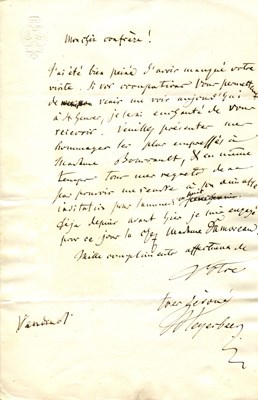 Mon cher confrère!
J'ai été bien peiné d'avoir manqué votre
visite. Si vos occupations vous permettent
de venir me voir aujourd'hui
à 4 heures, je serai enchanté de vous
recevoir. Veuillez présenter mes
hommages les plus empressés à
Madame, & en même
temps tous mes regrets de ne
pas pouvoir me rendre à son aimable
invitation pour
déjà depuis avant hier je suis engagé
pour ce jour là chez Madame Damoreau.
Mille compliments affectueux de
Votre
très dévoué
Meyerbeer
Vendredi